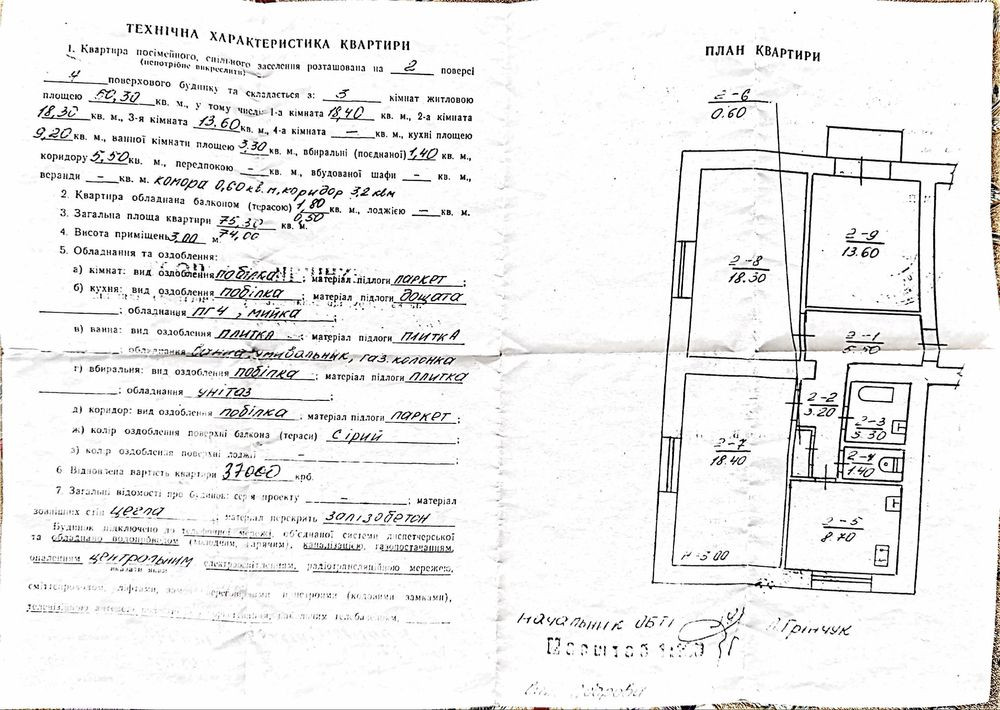 ТЕХНІЧНА ХАРАКТЕРИСТИКА КВАРТИРИ
1. Квартира посімейного, спільного заселення розташована на 2 поверсі
(непотрібне викреслити)
4 поверхового будинку та складається з: 3 кімнат житловою
площею 50,30 кв. м., у тому числі 1-а кімната 18,40 кв. м., 2-а кімната
18,30 кв. м., 3-я кімната 13.60 кв. м., 4-а кімната — кв. м., кухні площею
9,20 кв. м., ванної кімнати площею 3.30 кв. м., вбиральні (поєднаної) 1,40 кв. м.,
коридору 5,50 кв. м., передпокою - кв. м., вбудованої шафи - кв. м.,
веранди - кв. м. комора 0,60 кв.м, коридор 3,2 кв м
2. Квартира обладнана балконом (терасою) 1,80 кв. м., лоджією — кв. м.
0,50
3. Загальна площа квартири 75,30 кв. м.
74,00
4. Висота приміщень 3,00 м.
5. Обладнання та оздоблення:
а) кімнат: вид оздоблення побілка ; матеріал підлоги паркет ;
б) кухня: вид оздоблення побілка ; матеріал підлоги дощата
; обладнання ПГ4, мийка ;
в) ванна: вид оздоблення плитка ; матеріал підлоги плитка
; обладнання ванна, умивальник, газ. колонка
г) вбиральня: вид оздоблення побілка ; матеріал підлоги плитка
; обладнання унітаз ;
д) коридор: вид оздоблення побілка ; матеріал підлоги паркет ;
ж) колір оздоблення поверхні балкона (тераси) Сірий ;
з) колір оздоблення поверхні лоджії — ;
6. Відновлена вартість квартири 37000 крб.
7. Загальні відомості про будинок: серія проекту - ; матеріал
зовнішніх стін цегла ; матеріал перекрить залізобетон
Будинок підключено до телефонної мережі, об'єднаної системи диспетчерської
та обладнано водопроводом (холодним, гарячим), каналізацією, газопостачанням,
опаленням центрольним електроосвітленням, радіотрансляційною мережею,
вказати який
сміттєпроводом, ліфтами, пристроями (кодовими замками),
телевізійною антеною телебаченням,
ПЛАН КВАРТИРИ
2-6
0.60
2-9
13.60
2-8
18.30
2-1
5.50
2-2
3.20
2-3
3.30
2-4
1.40
2-7
18.40
2-5
8.70
H=3.00
Начальник ОБТІ Л. Грінчук